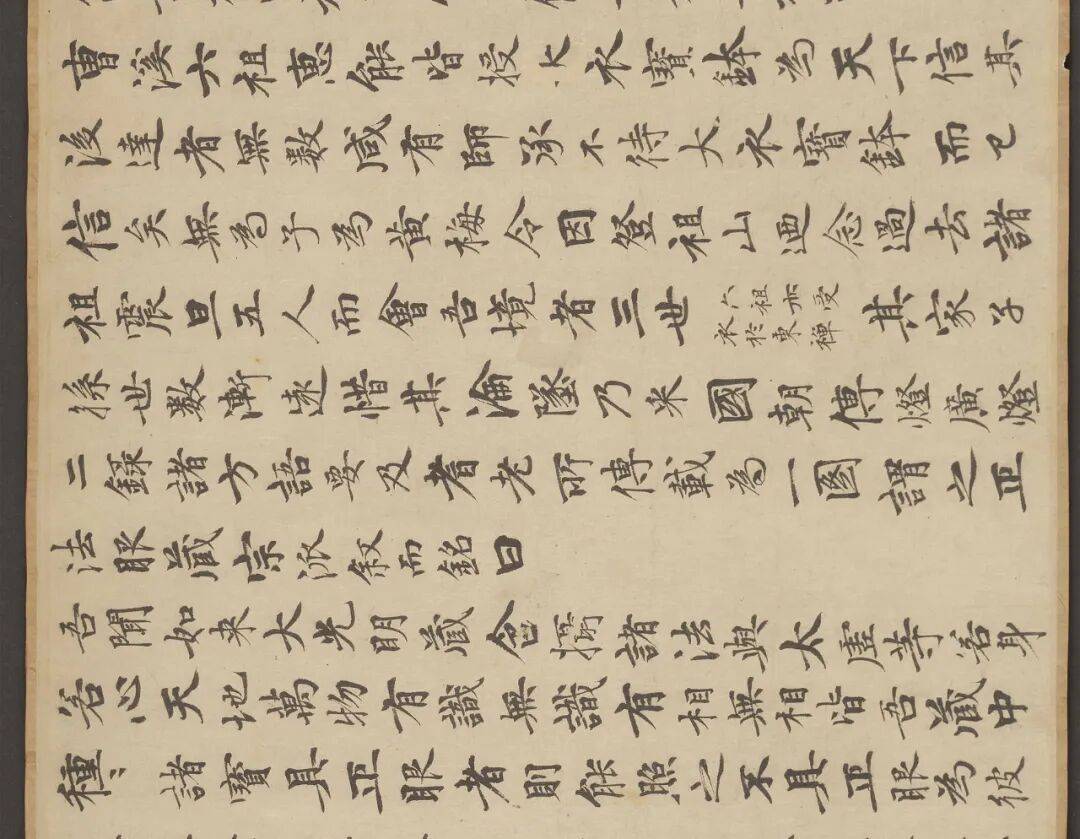 曹溪六祖惠能皆授大衣寳鉢為天下信其
後達者無數咸有師承不待大衣寳鉢而已
信矣無為子為黃梅令因登祖山迺念過去諸
祖震旦五人而會吾境者三世六祖亦受衣於東禪其家子
孫世數漸遠惜其淪墜乃采國朝傳燈廣燈
二録諸方語要及耆老所傳載為一圖謂之正
法眼藏宗派叙而銘曰
吾聞如来大光明藏含攝諸法與太虛等若身
若心天地萬物有識無識有相無相皆吾藏中
種〻諸寳具正眼者則能照之不具正眼為彼